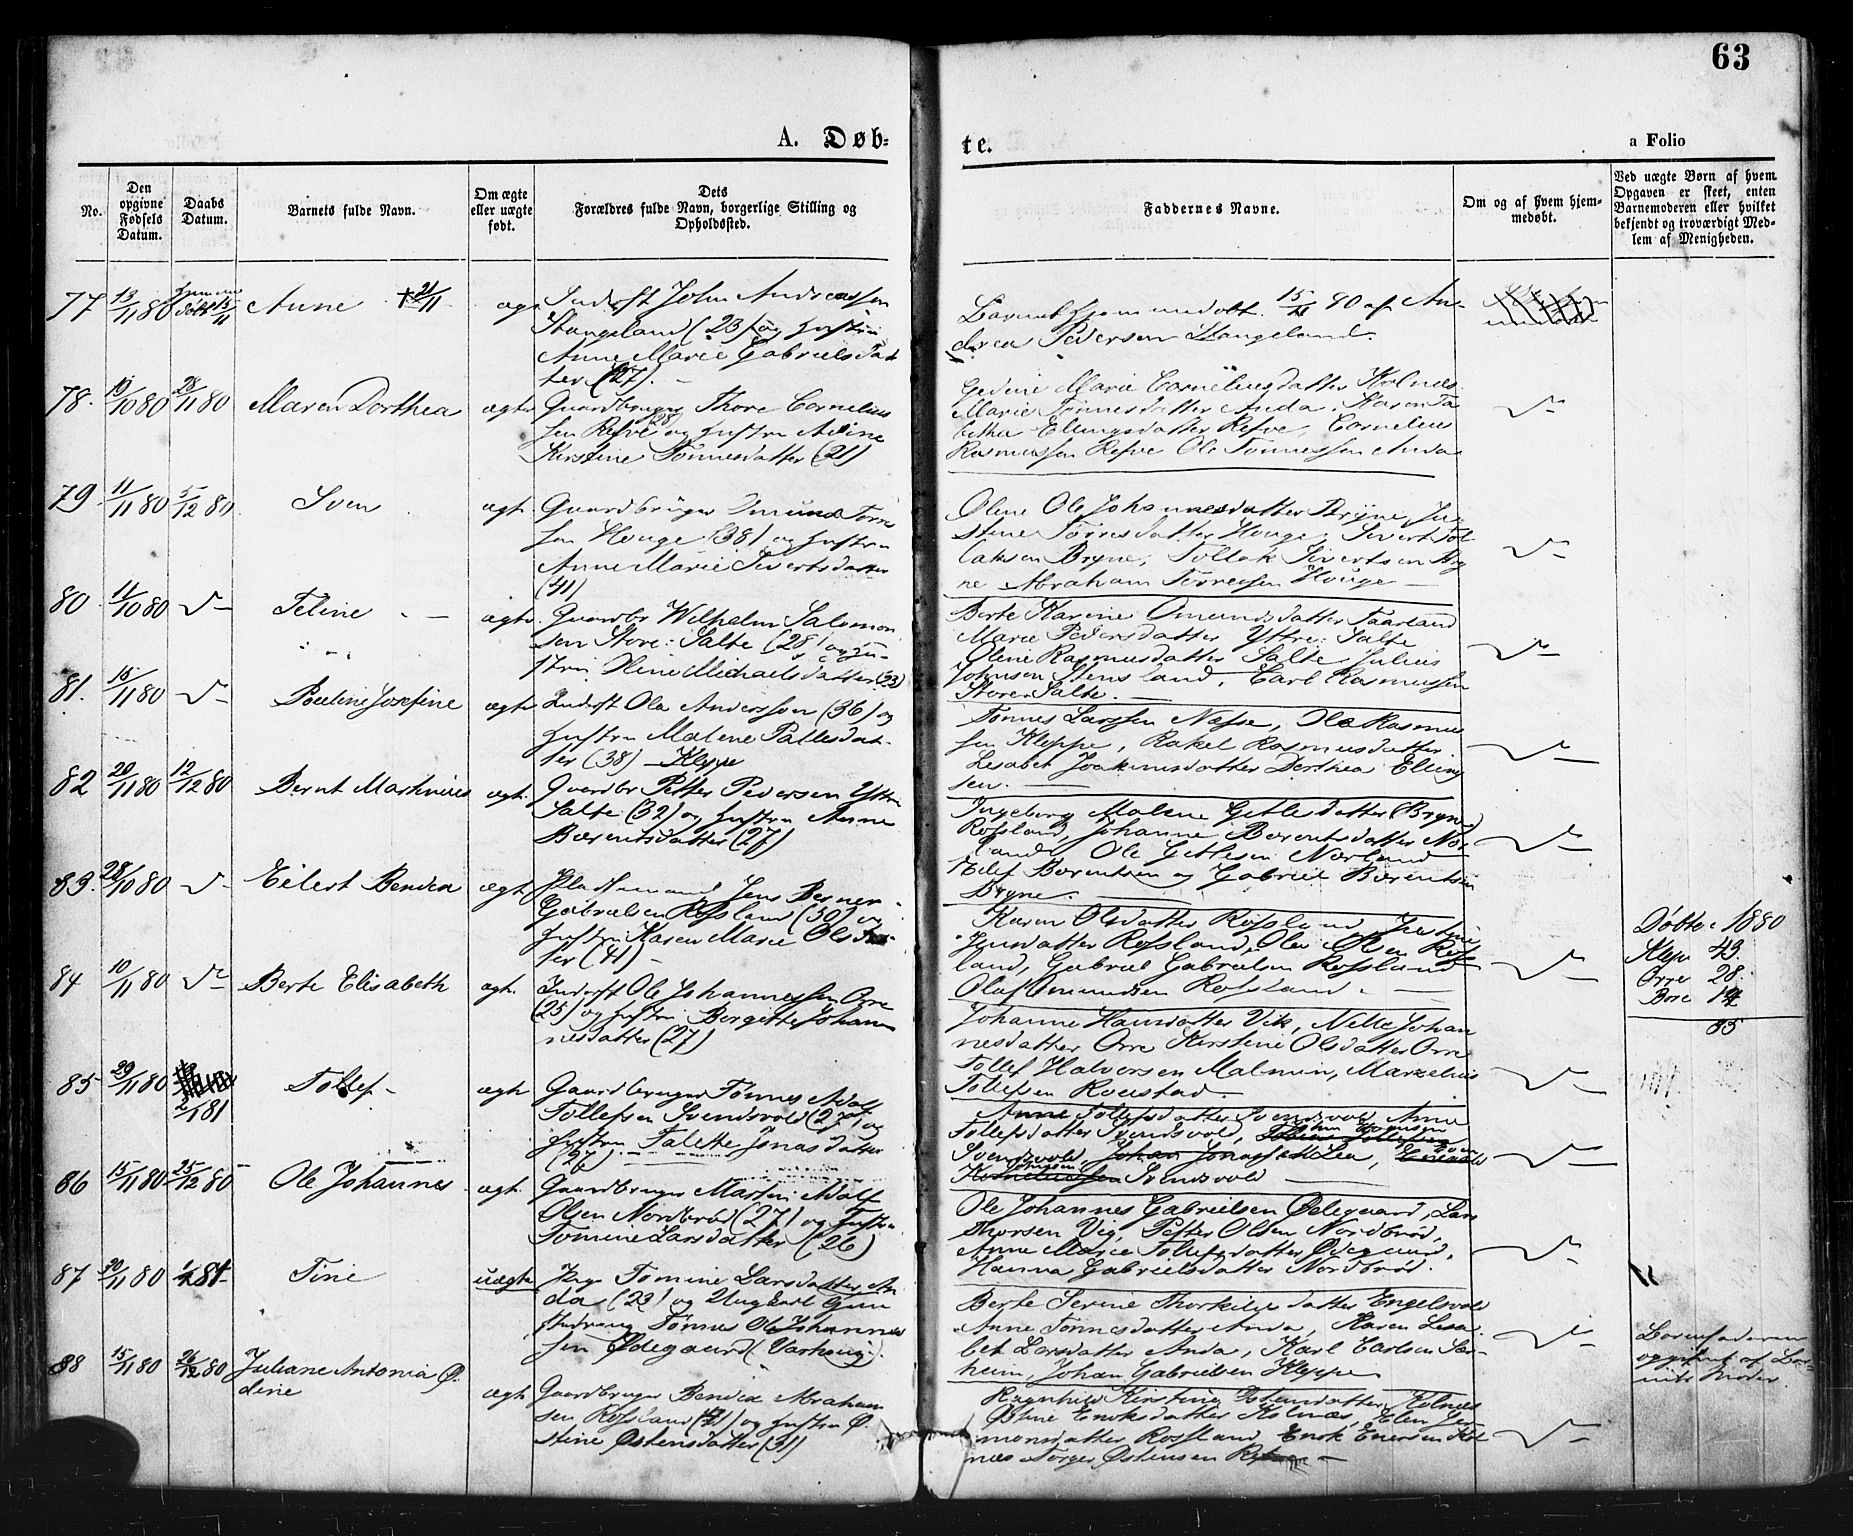 63
A. Døb-
te.
a Folio
No.
Den opgivne Fødsels Datum.
Daabs Datum.
Barnets fulde Navn.
Om ægte eller uægte født.
Dets Forældres fulde Navn, borgerlige Stilling og Opholdssted.
Faddernes Navne.
Om og af hvem hjemmedøbt.
Ved uægte Børn af hvem Opgaven er skeet, enten Barnemoderen eller hvilket bekjendt og troværdigt Medlem af Menigheden.
77 13/11 80 døbt 15/11 Anne † 21/11 æg Inderst John Andreassen
Stangeland (23) og Hustru
Anne Marie Gabrielsdat
ter (27). —
Barnet hjemmedøbt 15/11 80 af An-
drea Pedersen Stangeland.
78. 10/10 80 28/11 80 Maren Dorthea ægte Gaardbruger Thore Cornelius
sen Refve 28 og Hustru Adine
Kirstine Tønnesdatter (21)
Gedine Marie Corneliusdatter Holnæs
Marie Tønnesdatter Anda, Karen Ta
betha Ellingsdatter Refve, Cornelius
Rasmussen Refve Ole Tønnessen Anda
79. 11/11 80 5/12 80 Sven ægt. Gaardbruger Omund Torris
sen Houge (38) og Hustru
Anne Marie Sivertsdatter
(41)
Olene Ole Johannesdatter Bryne, Ju-
stine Torresdatter Houge, Sivert Tol
laksen Bryne, Tollak Sivertsen Bry
ne Abraham Torresen Houge —
80. 11/10 80 Teline ægte Gaardbr Wilhelm Salomon
sen Store: Salte (28) og Hu-
stru Olene Michaelsdatter (23)
Berte Karine Omundsdatter Taarland
Marie Pedersdatter Yttre: Salte
Olene Rasmusdatter Salte Julius
Johnsen Stensland, Carl Rasmussen
Store: Salte. —
81. 15/11 80 Pouline Josefine ægte Inderst Ole Andersson (36) og
Hustru Malene Pallesdat-
ter (38) — Kleppe
Tønnes Larssen Næsse, Ole Rasmus
sen Kleppe, Rakel Rasmusdatter
Lisabet Joakimsdatter Dorthea Elling
sen. —
82 20/11 80 12/12 80 Bernt Martinius ægt. Gaardbr Petter Pedersen Yttre
Salte (32) og Hustru Anne
Bærentsdatter (27)
Ingeborg Malene Getlesdatter (Bryne)
Rossland, Johanne Bærentsdatter Nær
land, Ole Getlesen Nærland
Bærentsen og Gabriel Bærentsen
Bryne. —
83. 28/10 80 Eilert Bendix ægt. Pladsmand Jens Berner
Gabrielsen Rossland (30) og
Hustru Karen Marie Olsdat-
ter (41) —
Karen Olsdatter Rossland,
Jensdatter Rossland, Ole Olsen Ross
land, Gabriel Gabrielsen Rossland
Olaf Omundsen Rossland. —
Døbte: 1880
Klep 43
Orre 28
Bore 14
85
84 10/11 80 Berte Elisabeth ægt. Inderst Ole Johannessen Orre
(25) og Hustru Borgette Johan
nesdatter (27)
Johanne Hansdatter Vik, Nelle Johan
nesdatter Orre Kirstine Olsdatter Orre
Tollef Halvorsen Malmin, Marzelius
Tollefsen Roestad.
85 29/11 80 2/1 81 Tollef — ægt. Gaardbruger Tønnes Adolf
Tollefsen Svendsvold (27) og
Hustru Talette Jonasdatter
(27)
Anne Tollefsdatter Svendsvold Anne
Tollefsdatter Svendsvold,
Svendsvold, Johan Jonassen Lea,
Svendsvold —
86 15/11 80 25/12 80 Ole Johannes ægt. Gaardbruger Martin Adolf
Olsen Nordbrød (27) og Hustru
Tomine Larsdatter (26)
Ole Johannes Gabrielsen Ødegaard, Lars
Thorsen Vig, Petter Olsen Nordbrød,
Anne Marie Tollefsdatter Ødegaard,
Hanna Gabrielsdatter Nordbrød.
87 30/11 80 1/1 81 Tine uægte Pige Tomine Larsdatter An
da (23) og Ungkarl Gaa
Tønnes Ole Johannes
sen Ødegaard (Varhoug).
Berte Serine Thorkildsdatter Engelsvold
Anne Tønnesdatter Anda, Karen Lisa
bet Larsdatter Anda, Karl Carlsen Sør-
heim, Johan Gabrielsen Kleppe
Barnefaderen
opgivet af Bar-
nets Moder.
88 15/11 80 26/12 80 Juliane Antonia Ø-
line
ægt. Gaardbruger Bendix Abraham
sen Rossland (21) og Hustru Ø-
stine Østensdatter (31)
Ragnhild Kirstine Østensdatter Holnæs
Østine Enoksdatter Holnæs, Elen Ser
monsdatter Rossland Enok Enersen Hol
næs Torger Østensen —